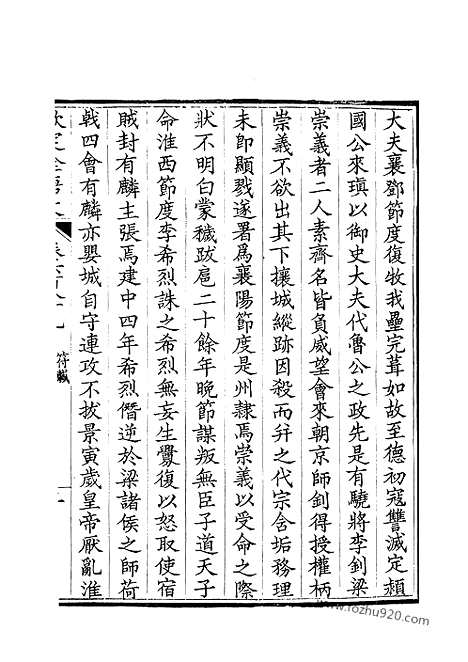 大夫襄鄧節度復牧我壘完葺如故至德初寇讐滅定潁
國公來瑱以御史大夫代魯公之政先是有驍將李釗梁
崇義者二人素齊名皆負威望會來朝京師釗得授權柄
崇義不欲出其下攘城縱跡因殺而并之代宗含垢務理
未即顯戮遂署爲襄陽節度是州隷焉崇義以受命之際
狀不明白蒙穢跋扈二十餘年晚節謀叛無臣子道天子
命淮西節度李希烈誅之希烈無妄生釁復以怒取使宿
賊封有麟主張焉建中四年希烈僭逆於梁諸侯之師荷
戟四會有麟亦嬰城自守連攻不拔景寅歲皇帝厭亂淮
符載
www.fozhu920.com